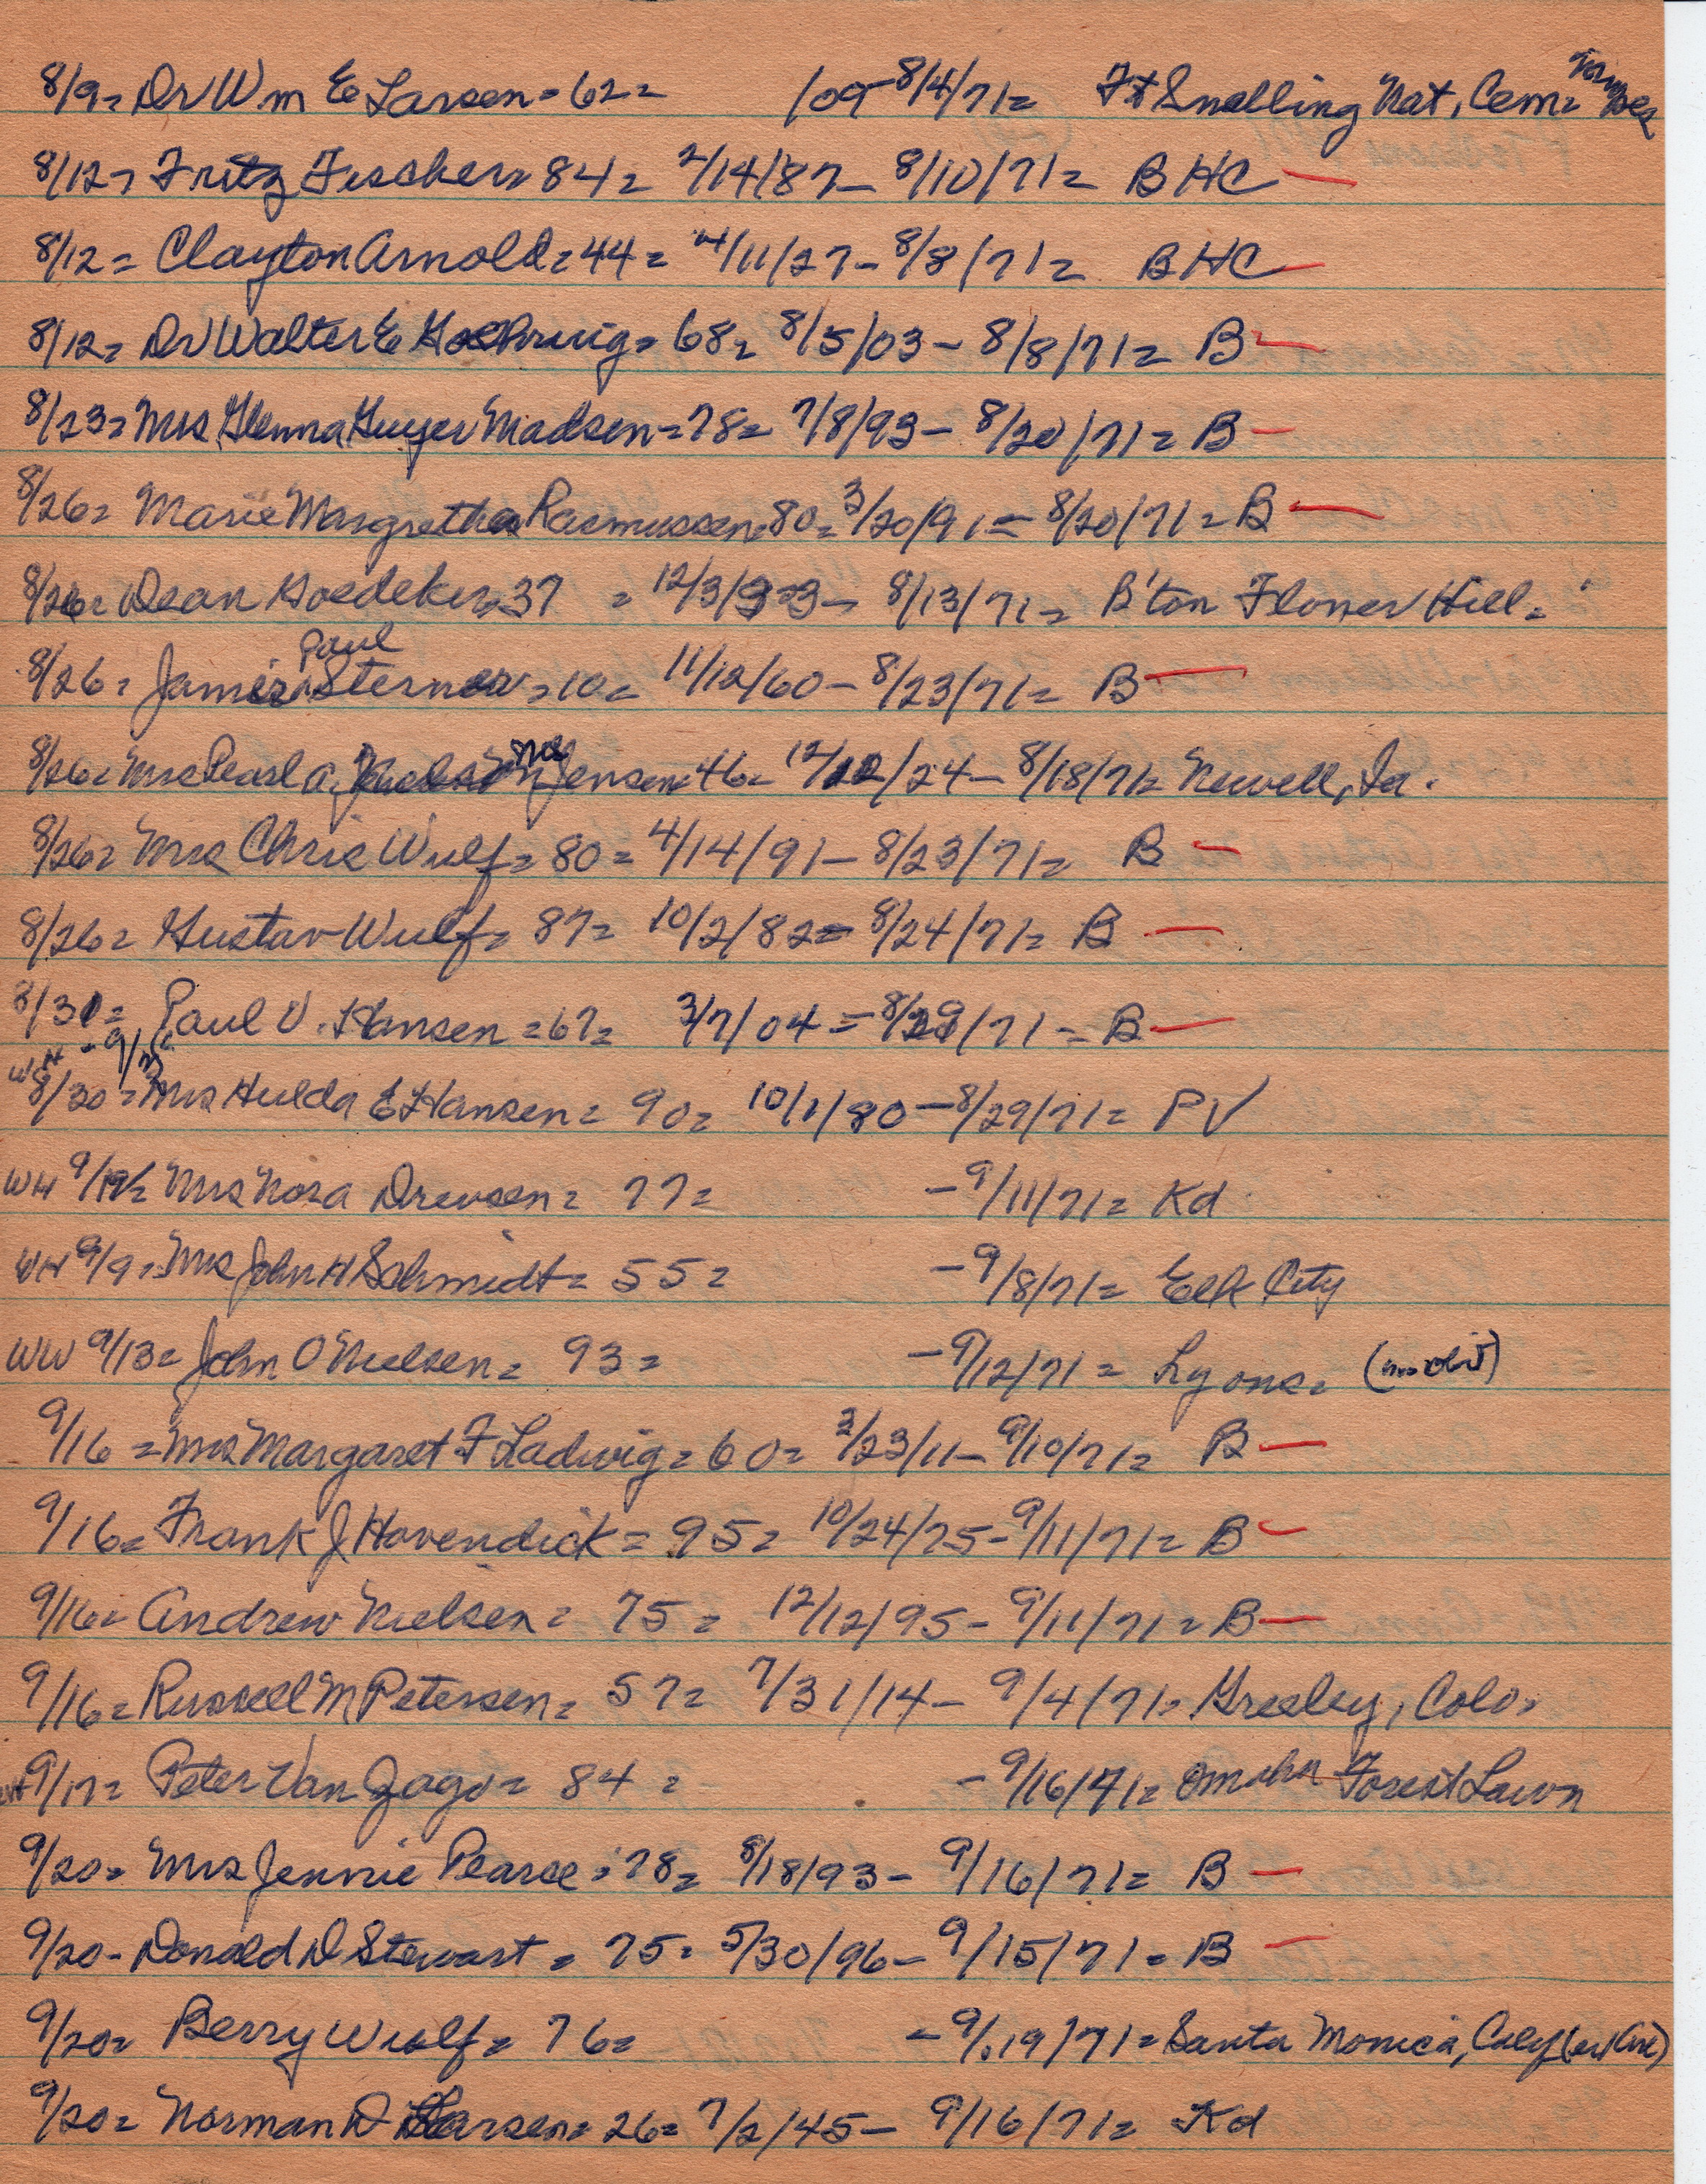 8/9= Dr Wm E Larsen= 62= /09-8/4/71= Ft Snelling Nat, Cem=
8/12= Fritz Fischer= 84= 2/14/87- 8/10/71= BHC
8/12= Clayton Arnold= 44= 4/11/27- 8/8/71= BHC
8/12= Dr Walter E = 68= 8/5/03- 8/8/71= B
8/23= Mrs Glenna Guyer Madsen=78= 7/8/93- 8/20/71= B
8/26= Marie Margrethe Rasmussen=80= 3/20/91= 8/20/71= B
8/26= Dean Goedeker=37 = 12/3/33- 8/13/71= B'ton Flower Hill=
Paul
8/26= James Sterner=10= 11/12/60- 8/23/71= B
8/26= Mrs Pearl A. Jensen=46= 12/22/24- 8/18/71= Newell, Ia.
8/26= Mrs Chris Wulf= 80= 4/14/91- 8/23/71= B
8/26= Gustav Wulf= 87= 10/2/82= 8/24/71= B
8/31= Paul V. Hansen=67= 3/7/04=8/29/71= B
8/30= Mrs Hulda E Hansen= 90= 10/1/80-8/29/71= PV
WH 9/12 Mrs Nora Drevsen= 77= -9/11/71= Kd
WH 9/9= Mrs John H Schmidt= 55= -9/8/71= Elk City
WW 9/13= John O Nielsen= 93= -9/12/71= Lyons= (no obit)
9/16=Mrs Margaret F Ladwig=60= 3/23/11-9/10/71= B
9/16= Frank J Havendick= 95= 10/24/75-9/11/71= B
9/16= Andrew Nielsen= 75= 12/12/95- 9/11/71= B
9/16= Russell M Petersen= 57= 7/31/14- 9/4/71= Greeley, Colo=
9/17= Peter Van Zago= 84= -9/16/71= Omaha Forest Lawn
9/20= Mrs Jennie Pearce=78= 8/18/93- 9/16/71= B
9/20- Donald D Stewart= 75= 5/30/96- 9/15/71= B
9/20= Berry Wulf= 76= -9/19/71= Santa Monica,
9/20= Norman D Larsen= 26= 7/2/45- 9/16/71= Kd